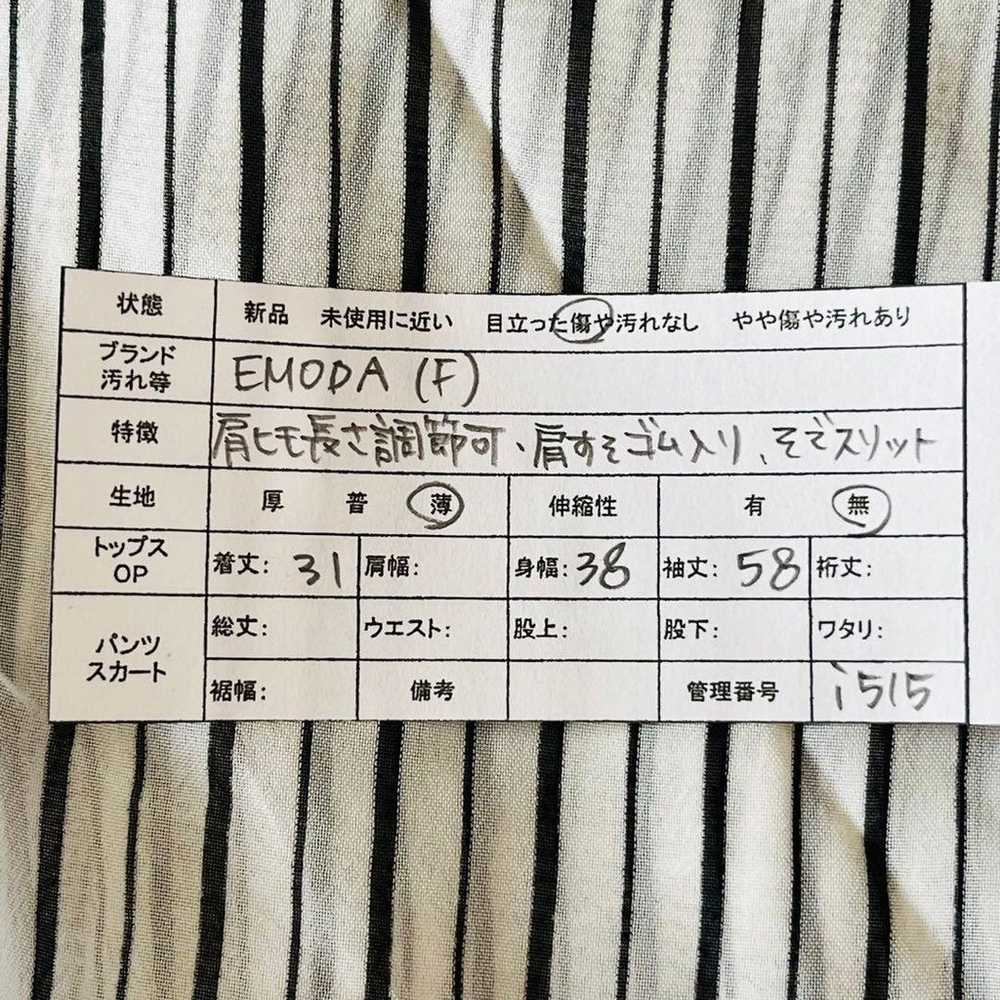 状態 新品 未使用に近い 目立った傷や汚れなし やや傷や汚れあり
ブランド
汚れ等 EMODA (F)
特徴 肩ヒモ長さ調節可、肩すそゴム入り、そでスリット
生地 厚 普 薄 伸縮性 有 無
トップス
OP 着丈: 31 肩幅: 身幅: 38 袖丈: 58 裄丈:
パンツ
スカート 総丈: ウエスト: 股上: 股下: ワタリ:
裾幅: 備考 管理番号 i515